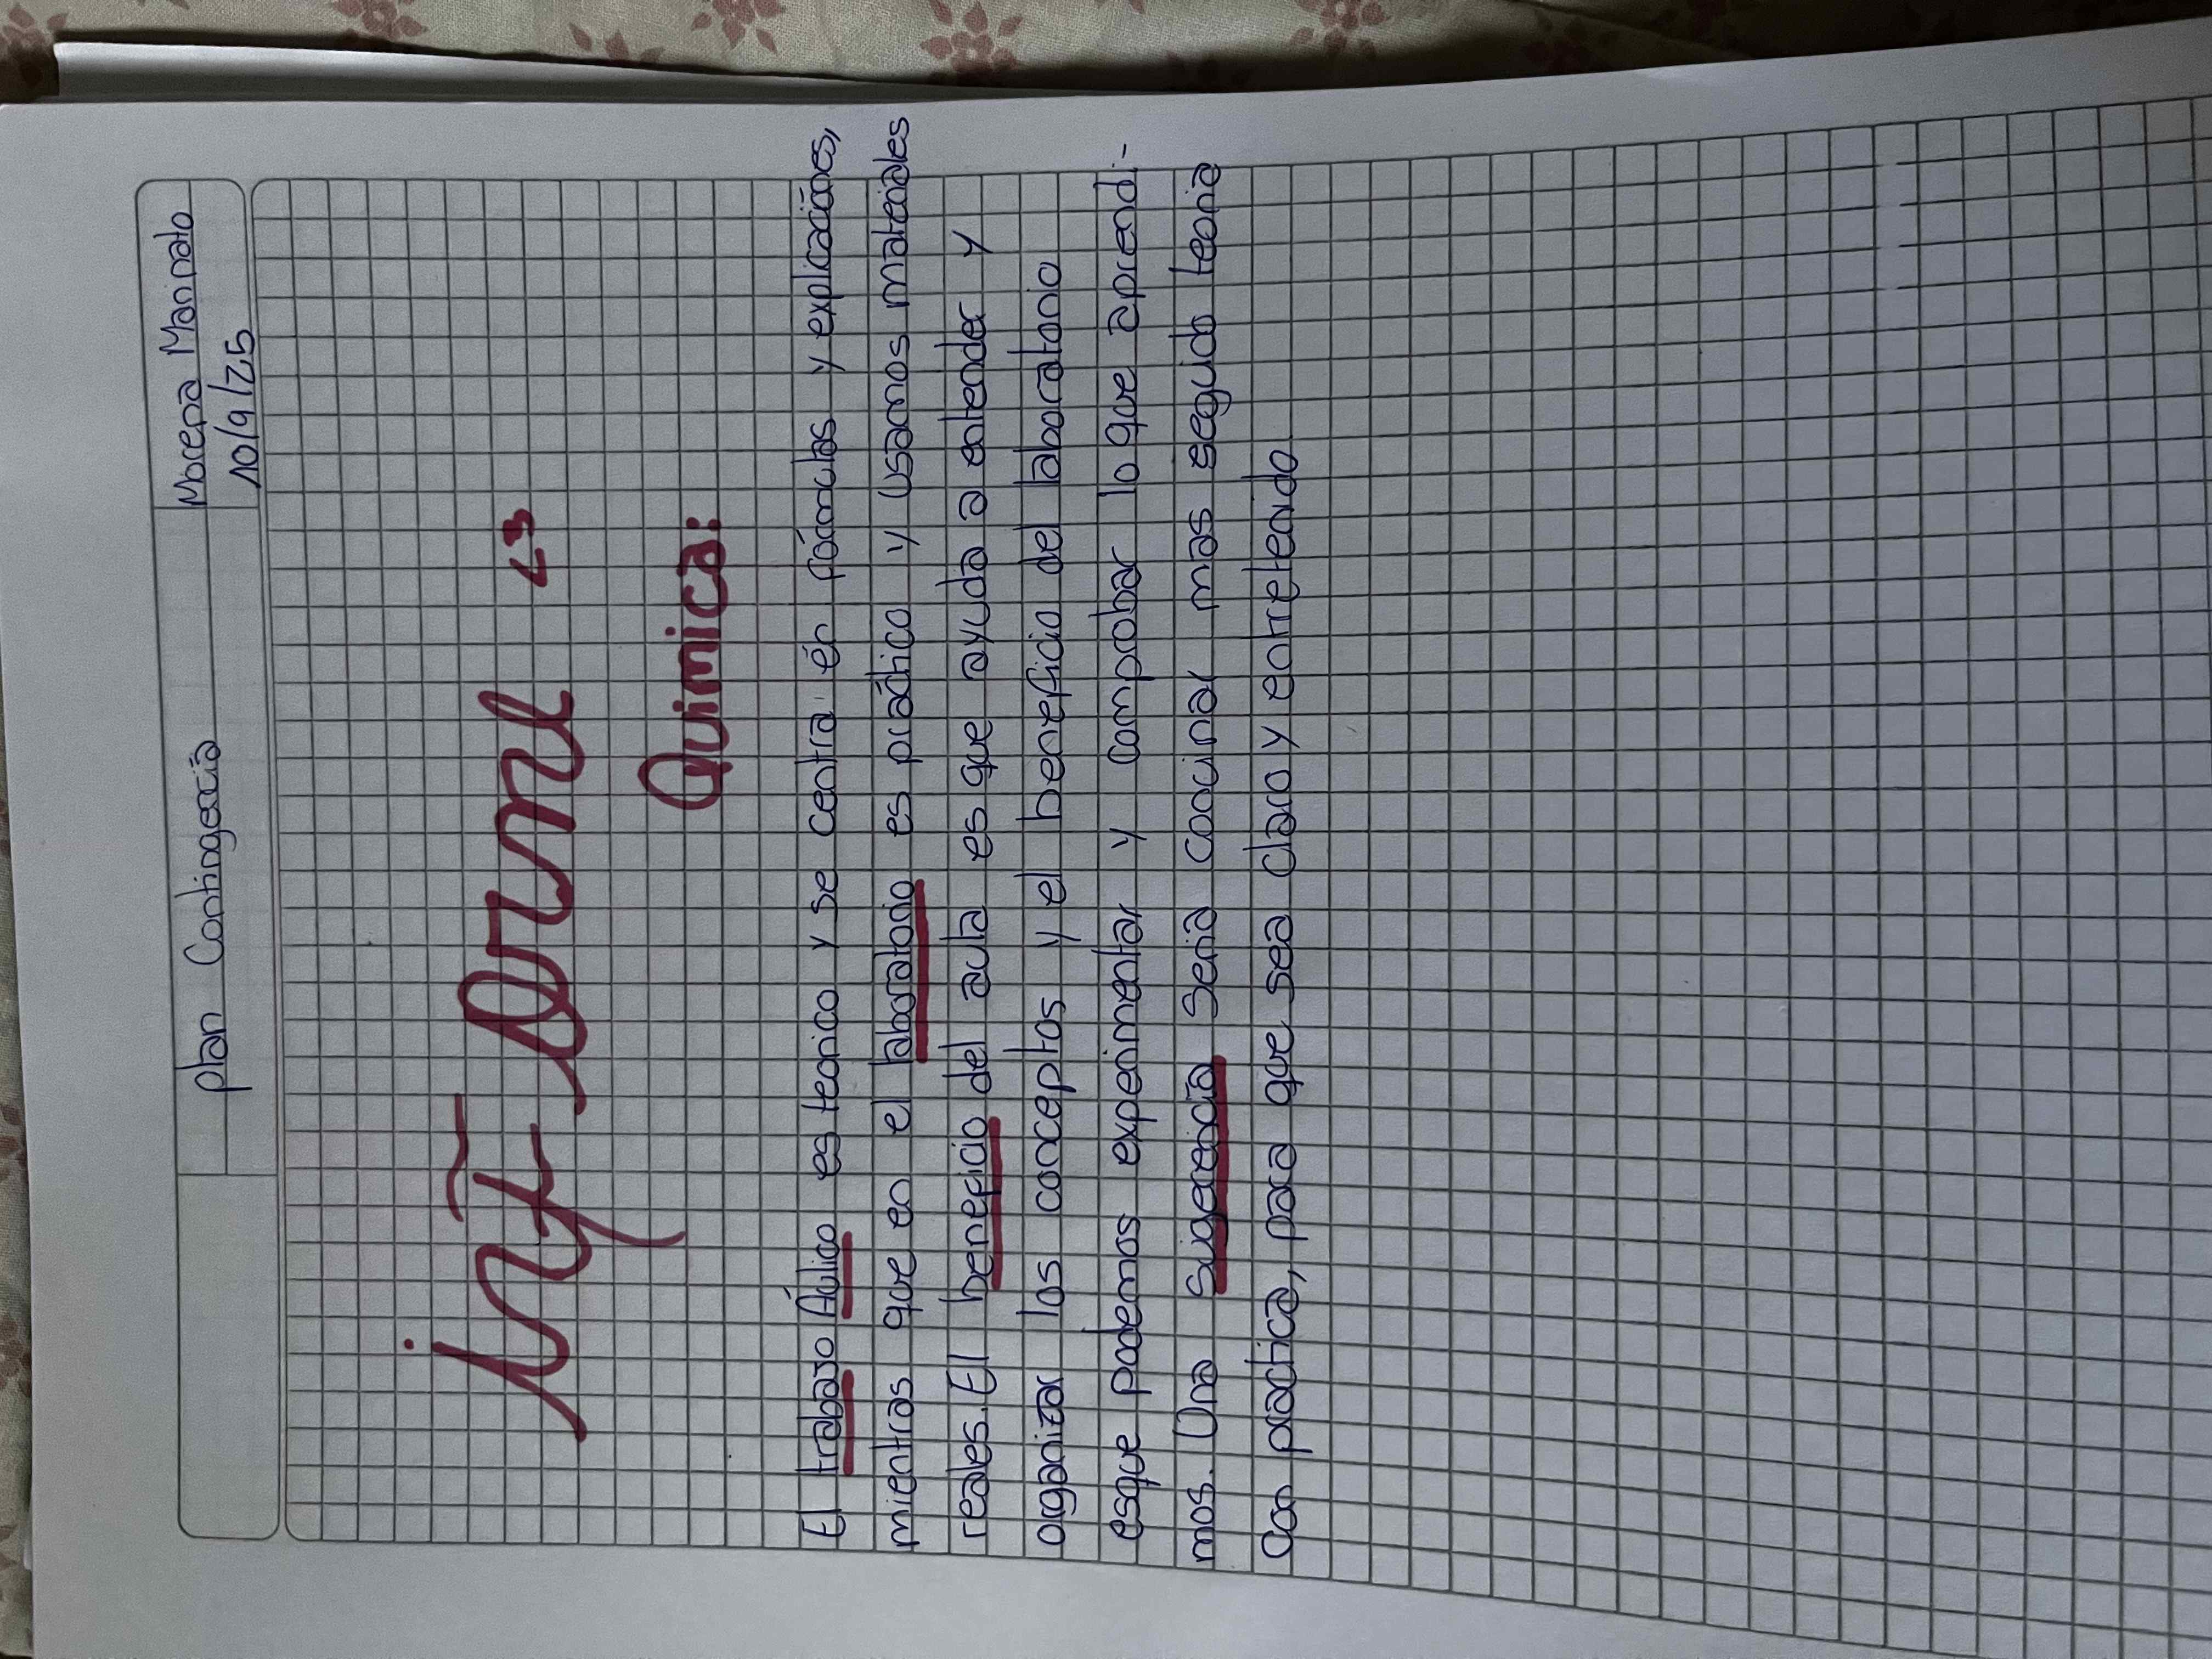 plan Contingencia
Morena Marinato
10/9/25
informe <3
Quimica:
El trabajo Áulico es teorico y se centra en fórmulas y explicaciónes,
mientras que en el laboratorio es práctico y usamos materiales
reales. El beneficio del aula es que ayuda a entender y
organizar los conceptos y el beneficio del laboratorio
esque podemos experimentar y comprobar lo que aprendi-
mos. Una sugerencia seria coocinar mas seguido teoria
con practica, para que sea claro y entretenido